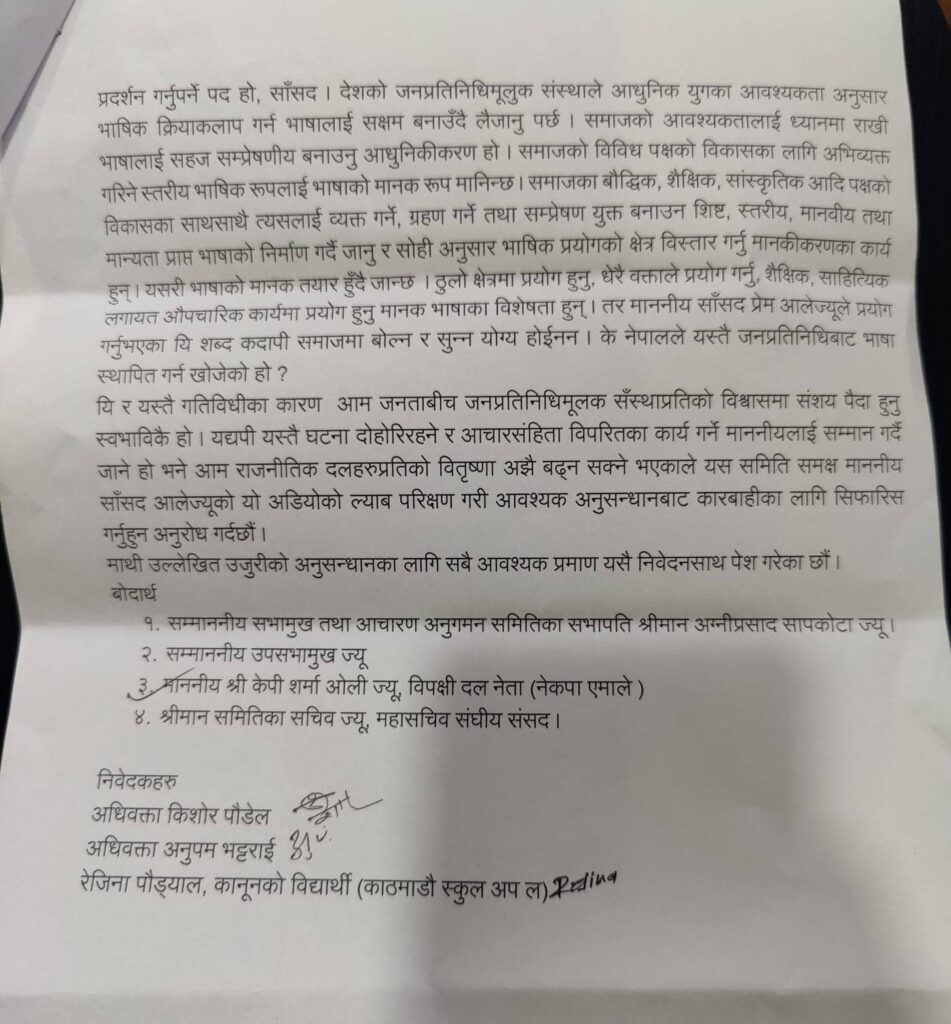 प्रदर्शन गर्नुपर्ने पद हो, साँसद । देशको जनप्रतिनिधिमूलुक संस्थाले आधुनिक युगका आवश्यकता अनुसार
भाषिक क्रियाकलाप गर्न भाषालाई सक्षम बनाउँदै लैजानु पर्छ । समाजको आवश्यकतालाई ध्यानमा राखी
भाषालाई सहज सम्प्रेषणीय बनाउनु आधुनिकीकरण हो । समाजको विविध पक्षको विकासका लागि अभिव्यक्त
गरिने स्तरीय भाषिक रूपलाई भाषाको मानक रूप मानिन्छ । समाजका बौद्धिक, शैक्षिक, सांस्कृतिक आदि पक्षको
विकासका साथसाथै त्यसलाई व्यक्त गर्ने, ग्रहण गर्ने तथा सम्प्रेषण युक्त बनाउन शिष्ट, स्तरीय, मानवीय तथा
मान्यता प्राप्त भाषाको निर्माण गर्दै जानु र सोही अनुसार भाषिक प्रयोगको क्षेत्र विस्तार गर्नु मानकीकरणका कार्य
हुन् । यसरी भाषाको मानक तयार हुँदै जान्छ । ठुलो क्षेत्रमा प्रयोग हुनु, धेरै वक्ताले प्रयोग गर्नु, शैक्षिक, साहित्यिक
लगायत औपचारिक कार्यमा प्रयोग हुनु मानक भाषाका विशेषता हुन् । तर माननीय साँसद प्रेम आलेज्यूले प्रयोग
गर्नुभएका यि शब्द कदापी समाजमा बोल्न र सुन्न योग्य होईनन । के नेपालले यस्तै जनप्रतिनिधिबाट भाषा
स्थापित गर्न खोजेको हो ?
यि र यस्तै गतिविधीका कारण आम जनताबीच जनप्रतिनिधिमूलक सँस्थाप्रतिको विश्वासमा संशय पैदा हुनु
स्वभाविकै हो । यद्यपी यस्तै घटना दोहोरिरहने र आचारसंहिता विपरितका कार्य गर्ने माननीयलाई सम्मान गर्दै
जाने हो भने आम राजनीतिक दलहरुप्रतिको वितृष्णा अझै बढ्न सक्ने भएकाले यस समिति समक्ष माननीय
साँसद आलेज्यूको यो अडियोको ल्याब परिक्षण गरी आवश्यक अनुसन्धानबाट कारबाहीका लागि सिफारिस
गर्नुहुन अनुरोध गर्दछौं ।
माथी उल्लेखित उजुरीको अनुसन्धानका लागि सबै आवश्यक प्रमाण यसै निवेदनसाथ पेश गरेका छौं ।
बोदार्थ
१. सम्माननीय सभामुख तथा आचारण अनुगमन समितिका सभापति श्रीमान अग्नीप्रसाद सापकोटा ज्यू ।
२. सम्माननीय उपसभामुख ज्यू
३. माननीय श्री केपी शर्मा ओली ज्यू, विपक्षी दल नेता (नेकपा एमाले )
४. श्रीमान समितिका सचिव ज्यू, महासचिव संघीय संसद ।
निवेदकहरु
अधिवक्ता किशोर पौडेल
अधिवक्ता अनुपम भट्टराई
रेजिना पौड्याल, कानूनको विद्यार्थी (काठमाडौ स्कुल अप ल)